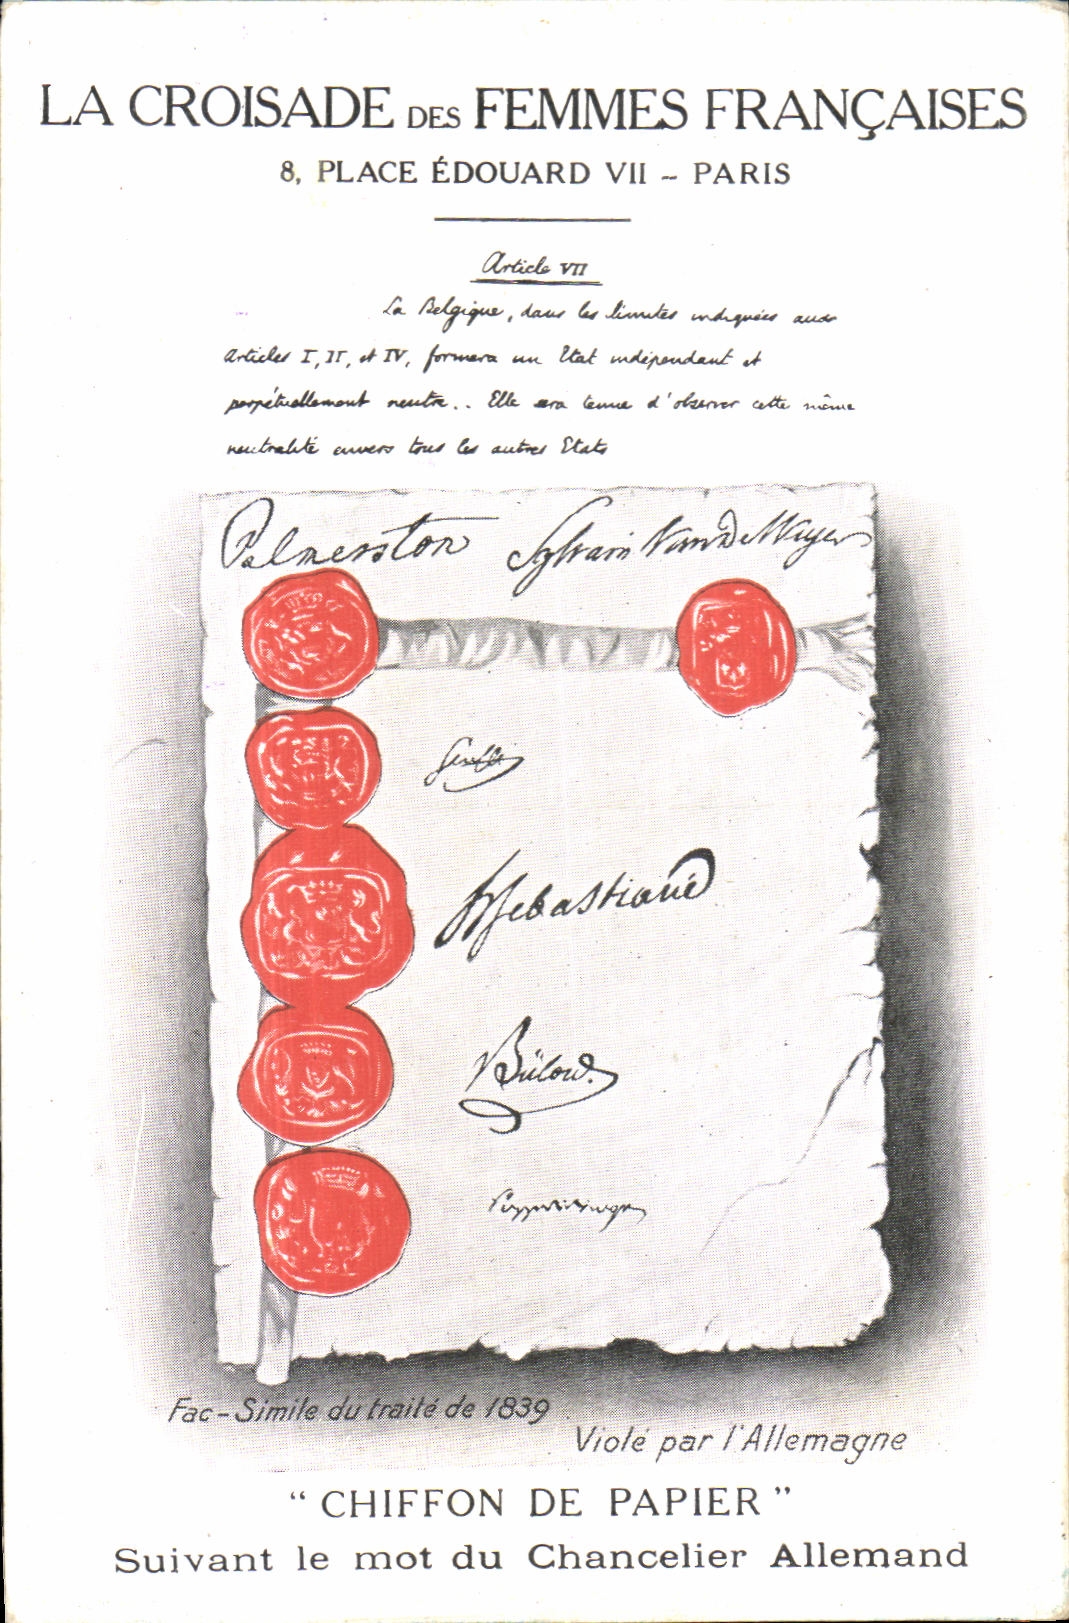 LA CROISADE DES FEMMES FRANÇAISES
8, PLACE ÉDOUARD VII – PARIS
Article VII
La Belgique, dans les limites indiquées aux
Articles I, II, et IV, formera un Etat indépendant et
perpétuellement neutre.. Elle sera tenue d'observer cette même
neutralité envers tous les autres Etats
Palmerston Sylvain Van de Weyer
Senfft
HSebastiani
Bülow.
Fac-Simile du traité de 1839
Violé par l'Allemagne
“ CHIFFON DE PAPIER ”
Suivant le mot du Chancelier Allemand